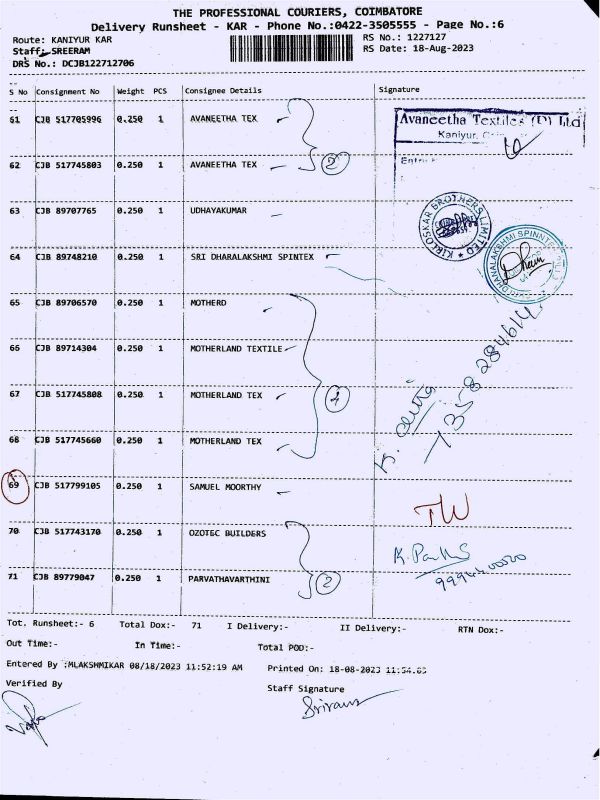 THE PROFESSIONAL COURIERS, COIMBATORE
Delivery Runsheet - KAR - Phone No.:0422-3505555 - Page No.:6
Route: KANIYUR KAR RS No.: 1227127
Staff: SREERAM RS Date: 18-Aug-2023
DRS No.: DCJB122712706
S No Consignment No Weight PCS Consignee Details Signature
61 CJB 517705996 0.250 1 AVANEETHA TEX
Avaneetha Textiles (P) Ltd
Kaniyur,
62 CJB 517745803 0.250 1 AVANEETHA TEX 2
63 CJB 89707765 0.250 1 UDHAYAKUMAR
KIRLOSKAR BROTHERS LIMITED
64 CJB 89748210 0.250 1 SRI DHARALAKSHMI SPINTEX
65 CJB 89706570 0.250 1 MOTHERD
66 CJB 89714304 0.250 1 MOTHERLAND TEXTILE
67 CJB 517745808 0.250 1 MOTHERLAND TEX
7358284614
68 CJB 517745660 0.250 1 MOTHERLAND TEX
69 CJB 517799105 0.250 1 SAMUEL MOORTHY
TW
70 CJB 517743170 0.250 1 OZOTEC BUILDERS
71 CJB 89779047 0.250 1 PARVATHAVARTHINI 2
Tot. Runsheet:- 6 Total Dox:- 71 I Delivery:- II Delivery:- RTN Dox:-
Out Time:- In Time:- Total POD:-
Entered By :MLAKSHMIKAR 08/18/2023 11:52:19 AM Printed On: 18-08-2023
Verified By Staff Signature